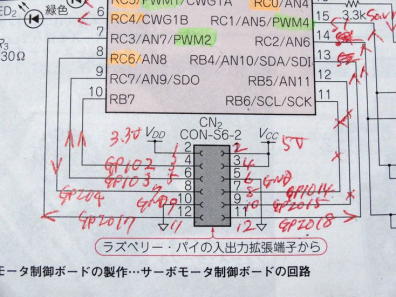 RC5/PWM1/CWG1A
RC0/AN4
LED2 緑色
RC4/CWG1B
RC1/AN5/PWM4
15
3.3k
7
RC3/AN7/PWM2
RC2/AN6
14
R3
30Ω
8
RC6/AN8
RB4/AN10/SDA/SDI
13
9
RC7/AN9/SDO
RB5/AN11
12
10
RB7
RB6/SCL/SCK
11
CN2
CON-S6-2
3.3V
VDD
VCC
5V
2
1
1
2
4
3
3
4
GP102
6
5
5
6
GND
GP103
8
7
7
8
GP1014
GP204
10
9
9
10
GP2015
GND
12
11
11
12
GP2017
GP2018
ラズベリー・パイの入出力拡張端子から
モータ制御ボードの製作…サーボモータ制御ボードの回路